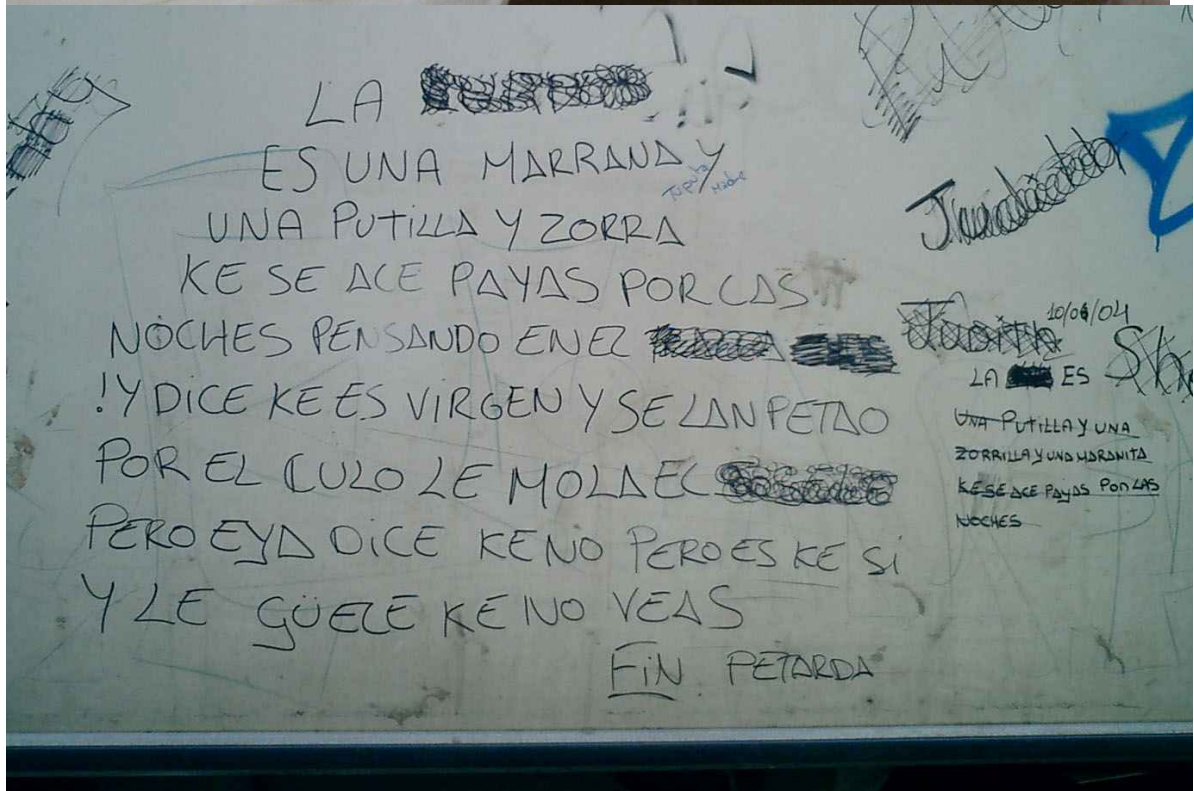 LA
ES UNA MARRANA Y
Tu puta Madre
UNA PUTILLA Y ZORRA
KE SE ACE PAYAS POR LAS
NOCHES PENSANDO EN EL
!Y DICE KE ES VIRGEN Y SE LAN PETAO
POR EL CULO LE MOLA EL
PERO EYA DICE KE NO PERO ES KE SI
Y LE GÜELE KE NO VEAS
FIN PETARDA
10/06/04
LA ES
UNA PUTILLA Y UNA
ZORRILLA Y UNA MARANITA
KE SE ACE PAYAS POR LAS
NOCHES